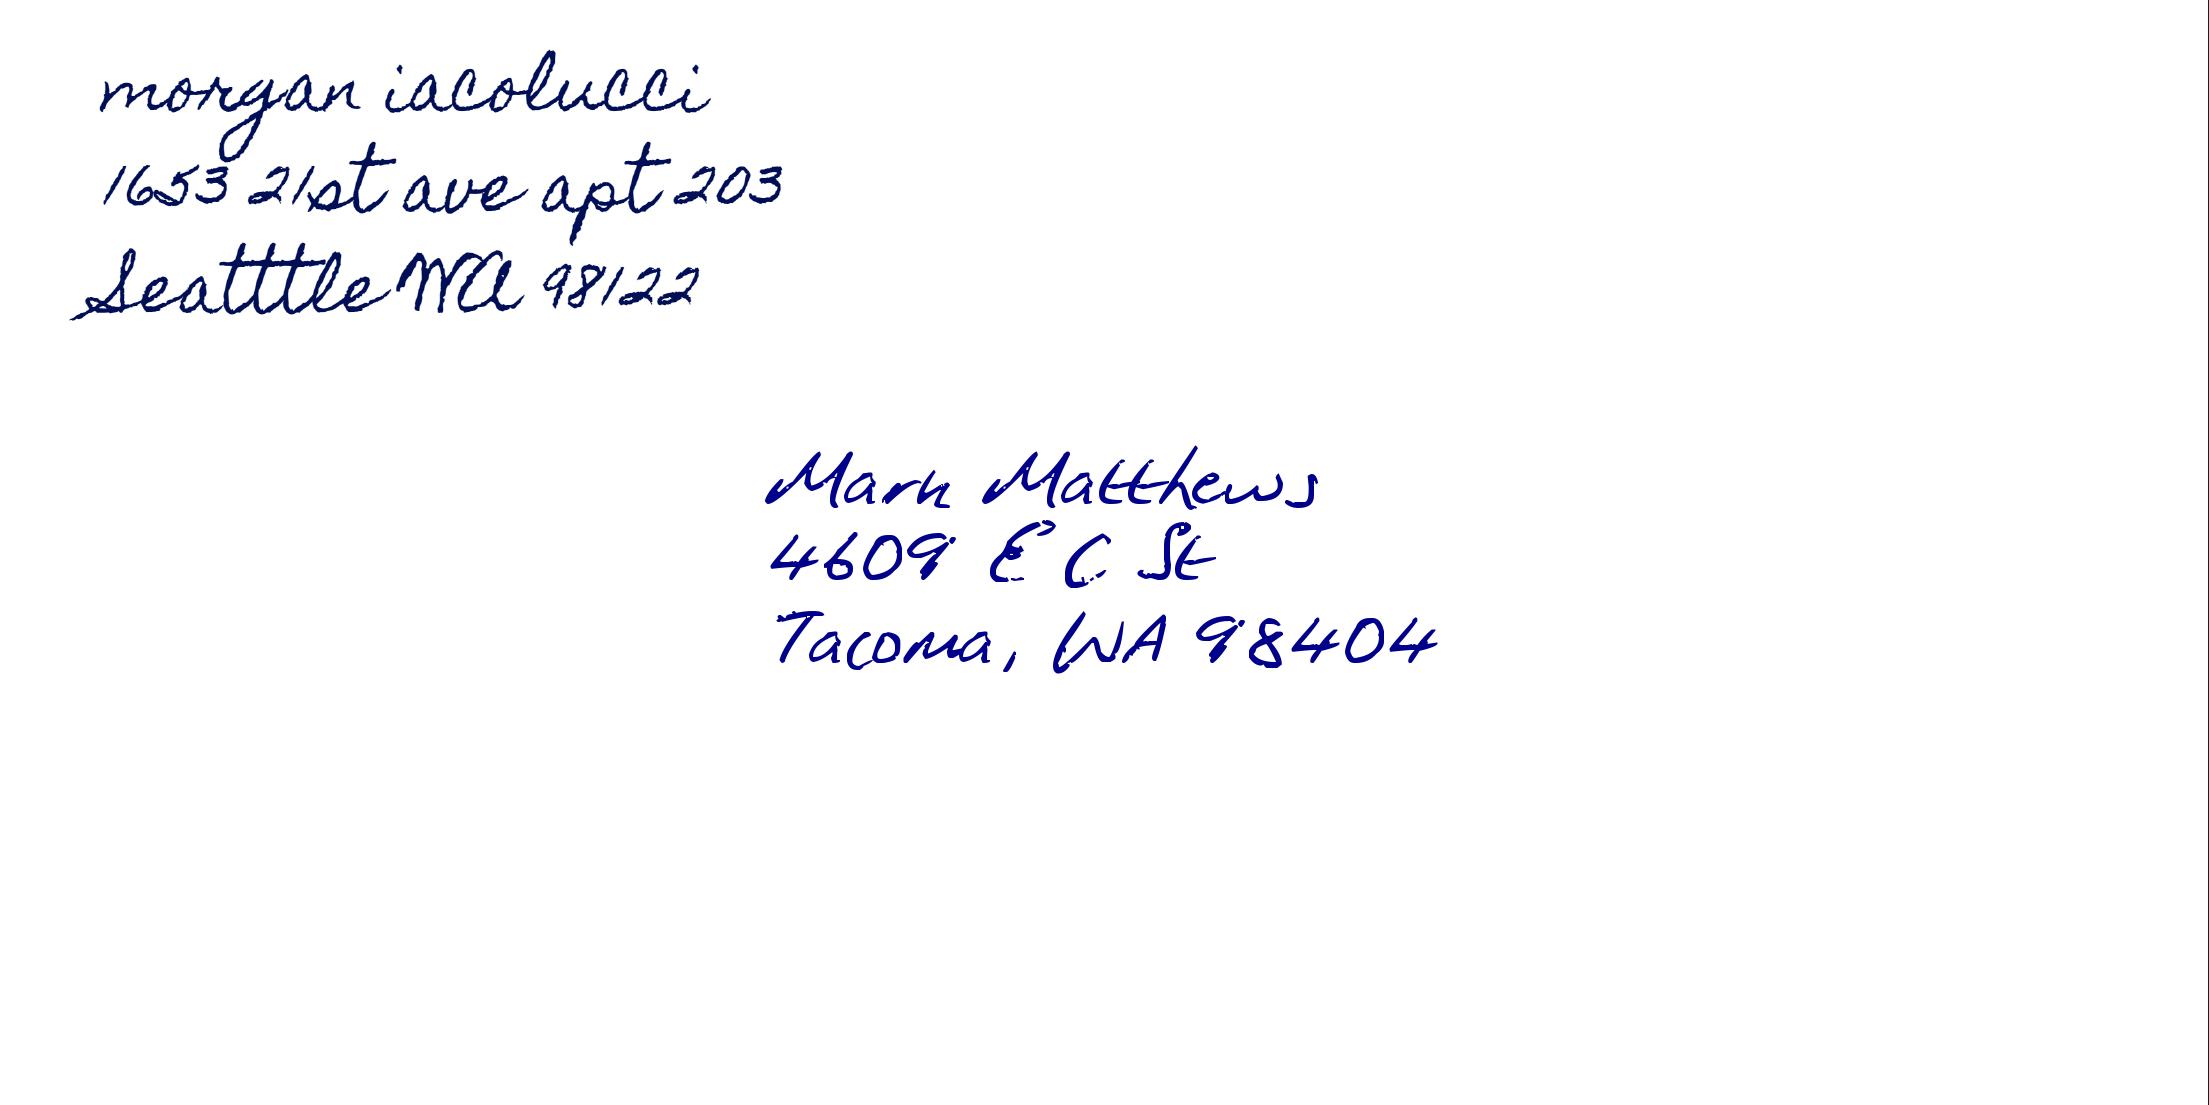 morgan iacolucci
1653 21st ave apt 203
Seatttle WA 98122
Mark Matthews
4609 E C St
Tacoma, WA 98404